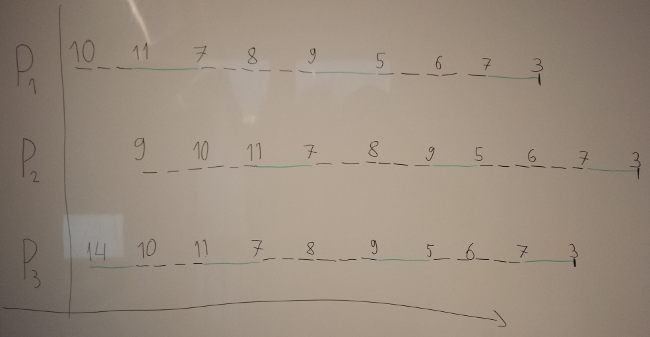 P1 10 11 7 8 9 5 6 7 3
P2 9 10 11 7 8 9 5 6 7 3
P3 14 10 11 7 8 9 5 6 7 3